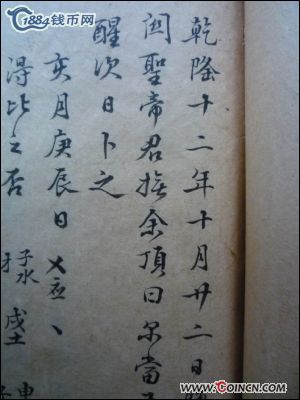 1884钱币网
乾隆十二年十月廿二日
関聖帝君撫余頂曰尔當
醒次日卜之
亥月庚辰日
得比之否
子水
戌土
申
www.COINCN.com